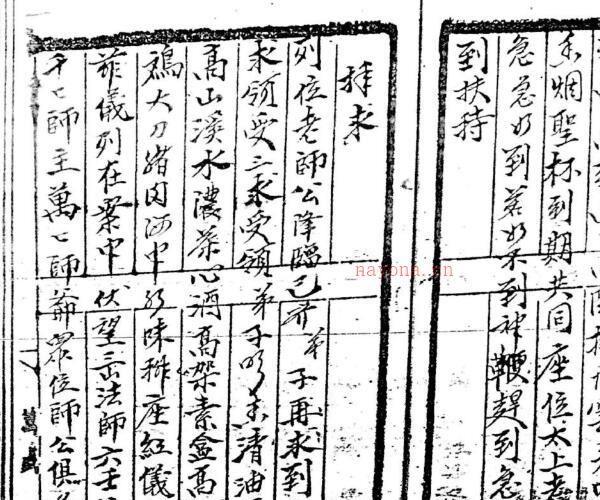 香烟聖杯到期共同座位太上老
急急如到若如不到神鞭趕到急
到扶持
拜求
列位老師公降臨已齐弟子再求到
求領受二求受領弟子明香清油
高山溪水濃茶心酒高架素盒高
鷄大刀猪肉河中 味排座紅儀
兹儀列在案中伏望 法師六士
千千師主萬萬師爺眾位師公俱
nayona.cn